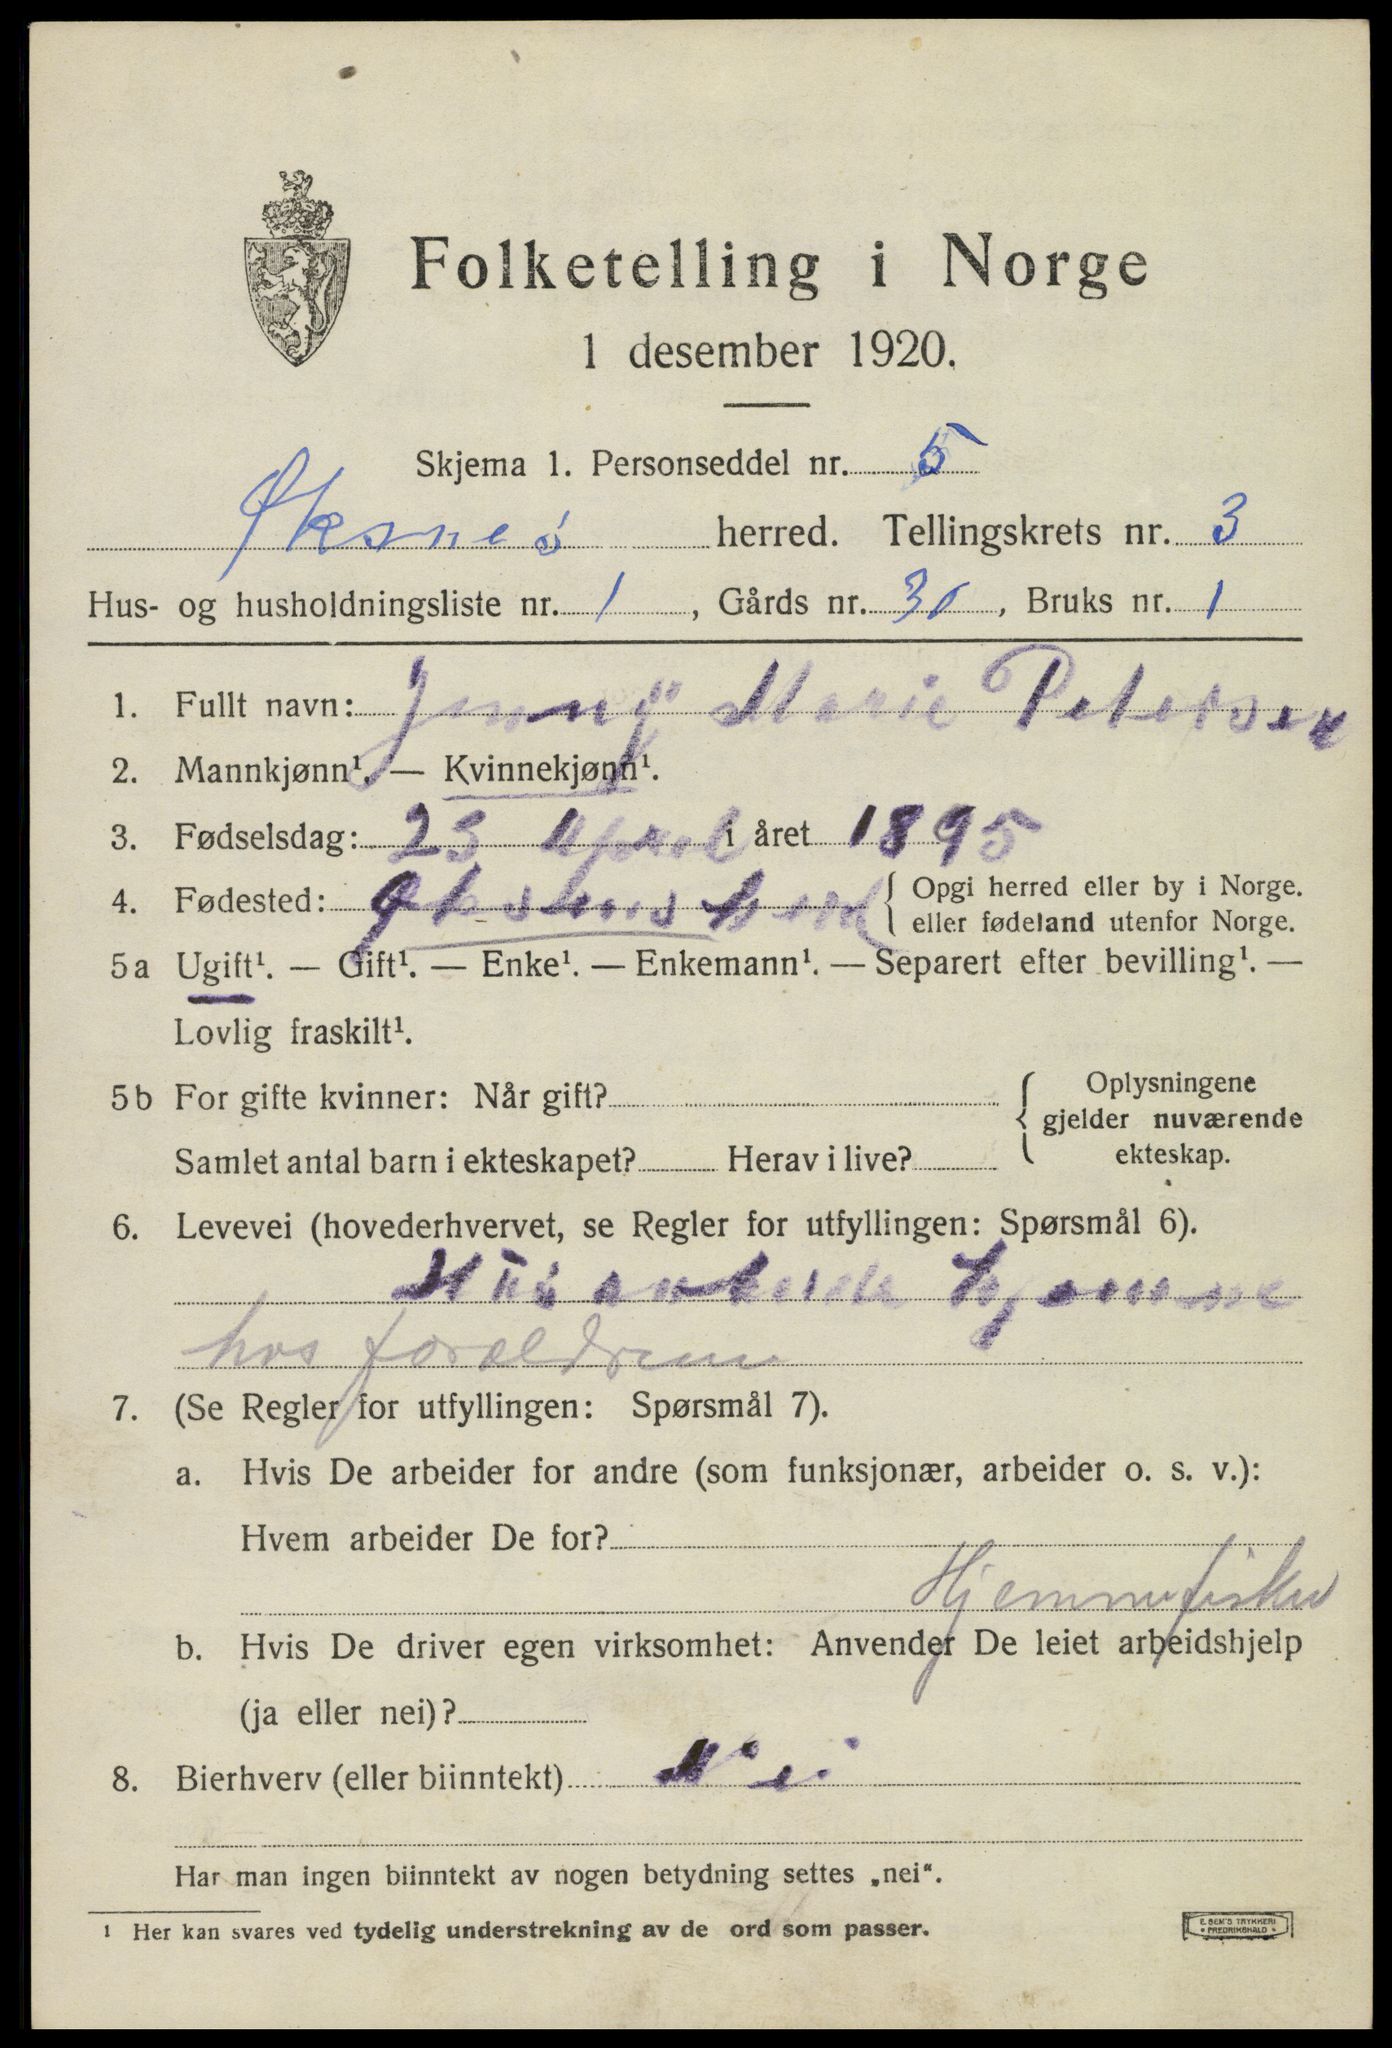 Folketelling i Norge
1 desember 1920.
Skjema 1. Personseddel nr. 5
Øksnes herred. Tellingskrets nr. 3
Hus- og husholdningsliste nr. 1, Gårds nr. 30, Bruks nr. 1
1. Fullt navn: Jenny Marie Petersen
2. Mannkjønn¹. — Kvinnekjønn¹.
3. Fødselsdag: 23 April i året 1895
4. Fødested: Øksnes herred { Opgi herred eller by i Norge.
eller fødeland utenfor Norge.
5a Ugift¹. — Gift¹. — Enke¹. — Enkemann¹. — Separert efter bevilling¹. —
Lovlig fraskilt¹.
5b For gifte kvinner: Når gift? { Oplysningene
gjelder nuværende
ekteskap.
Samlet antal barn i ekteskapet? Herav i live?
6. Levevei (hovederhvervet, se Regler for utfyllingen: Spørsmål 6).
Hüsarbeide hjemme
hos foreldrene
7. (Se Regler for utfyllingen: Spørsmål 7).
a. Hvis De arbeider for andre (som funksjonær, arbeider o. s. v.):
Hvem arbeider De for?
Hjemmefisker
b. Hvis De driver egen virksomhet: Anvender De leiet arbeidshjelp
(ja eller nei)?
8. Bierhverv (eller biinntekt) Nei
Har man ingen biinntekt av nogen betydning settes „nei“.
¹ Her kan svares ved tydelig understrekning av de ord som passer.
E. SEM'S TRYKKERI
FREDRIKSHALD